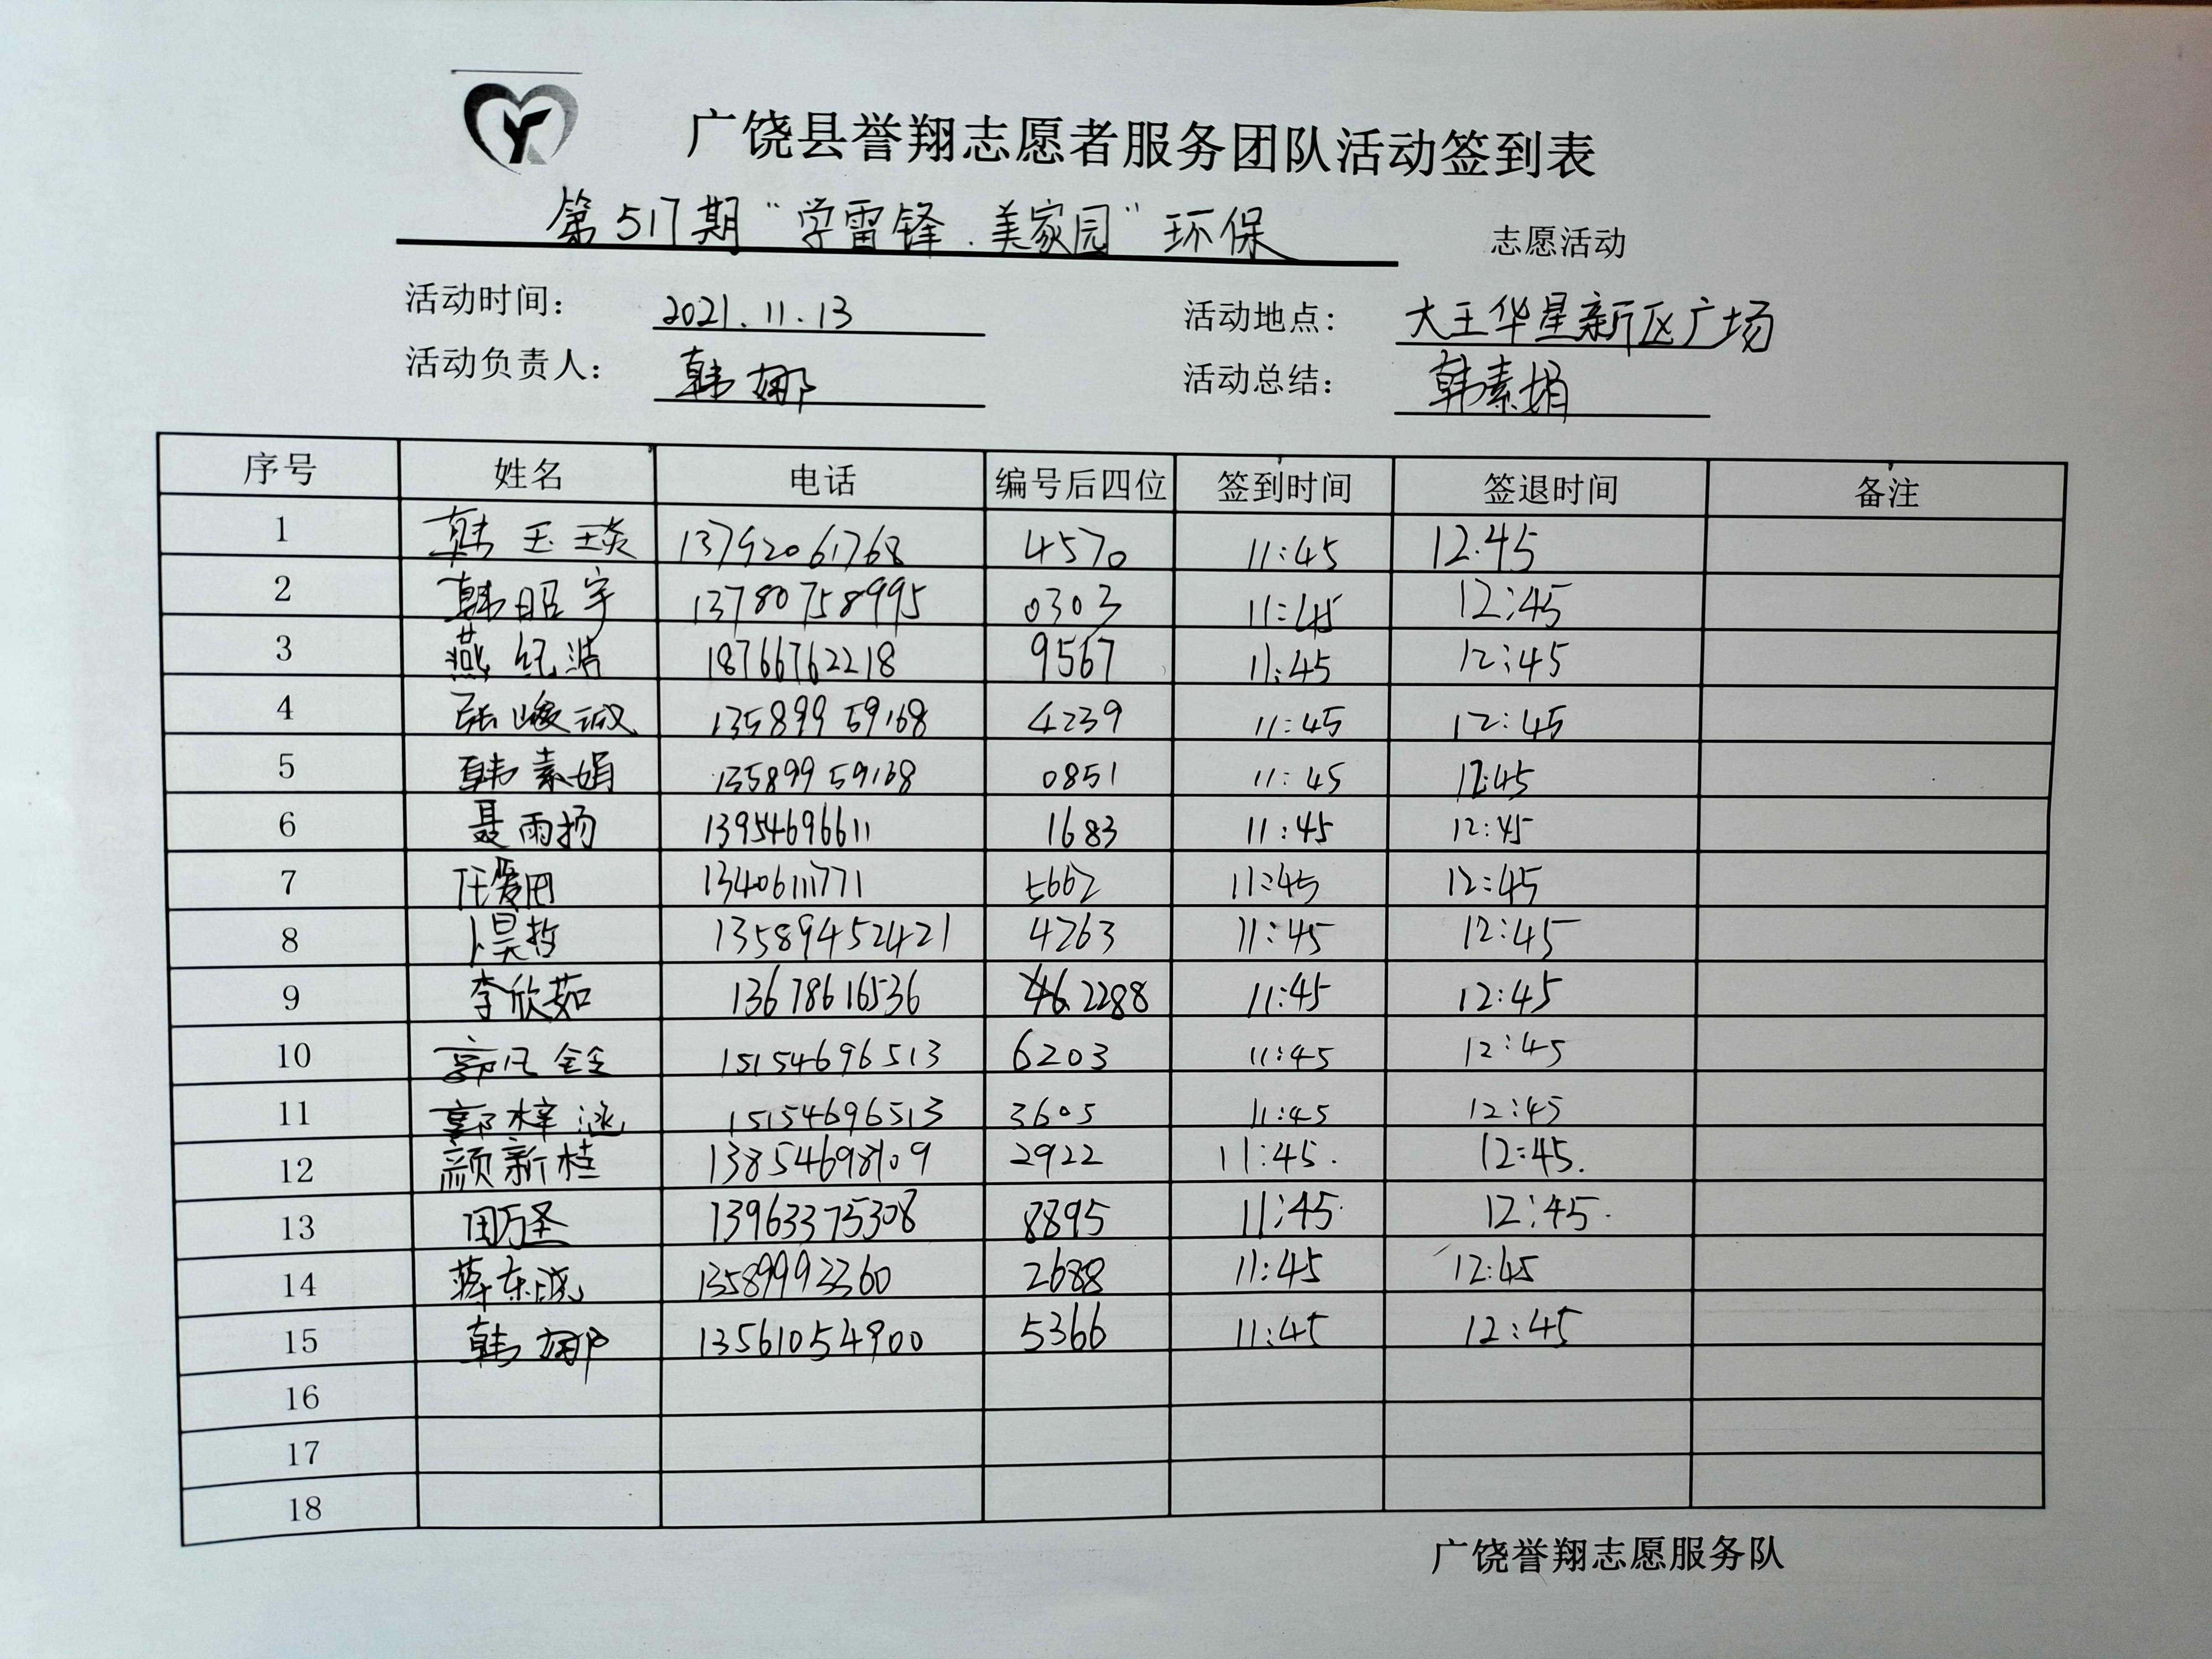 广饶县誉翔志愿者服务团队活动签到表
第517期“学雷锋.美家园”环保 志愿活动
活动时间： 2021.11.13 活动地点： 大王华星新区广场
活动负责人： 韩娜 活动总结： 韩素娟
序号 姓名 电话 编号后四位 签到时间 签退时间 备注
1 韩玉琰 13792061768 4570 11:45 12.45
2 韩昭宇 13780758995 0303 11:45 12:45
3 燕纪浩 18766762218 9567 11:45 12:45
4 张峻诚 13589959168 4239 11:45 12:45
5 韩素娟 13589959168 0851 11:45 12:45
6 聂雨扬 13954696611 1683 11:45 12:45
7 任爱田 13406111771 5662 11:45 12:45
8 卜昊哲 135894452421 4263 11:45 12:45
9 李欣茹 13678616536 2288 11:45 12:45
10 郭凡铨 15154696513 6203 11:45 12:45
11 郭梓涵 15154696513 3605 11:45 12:45
12 颜新桂 13854698109 2922 11:45. 12:45.
13 田万圣 13963375308 8895 11:45. 12:45.
14 蒋东晓 13589993360 2688 11:45 12:45
15 韩娜 13561054900 5366 11:45 12:45
16
17
18
广饶誉翔志愿服务队